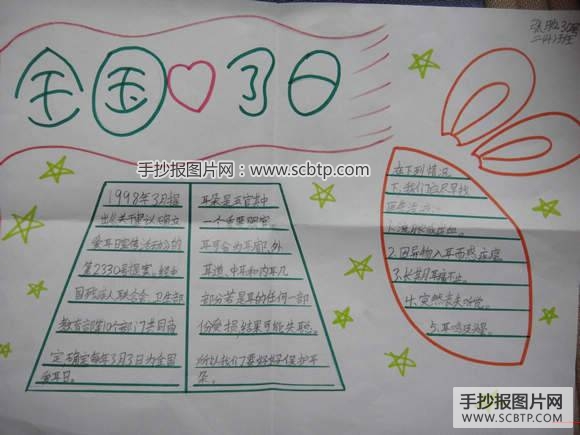 全国♡耳日
手抄报图片网：www.scbtp.com
1998年3月
第2330号提案，经由
国残疾人联合会、卫生部
教育部等10个部门共同商
定，确定每年3月3日为全国
爱耳日。
耳朵是五官其中
一个重要
耳可分为耳廓、外
耳道、中耳和内耳几
部分若是耳的任何一部
份受损，结果可能失聪。
所以我们要好好保护耳
朵。
在下列情况
下，我们应尽早找
2.因异物入耳而感症痛
3.长期耳痛不止。
4.突然失去听觉。
5.耳鸣
手抄报图片网
WWW.SCBTP.COM